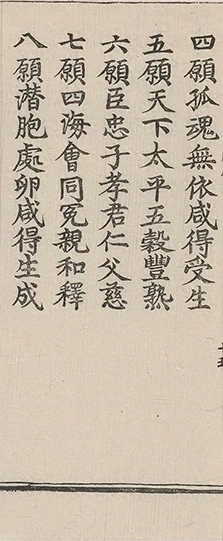 四願孤魂無依咸得受生
五願天下太平五穀豐熟
六願臣忠子孝君仁父慈
七願四海會同冤親和釋
八願潛胞處卵咸得生成